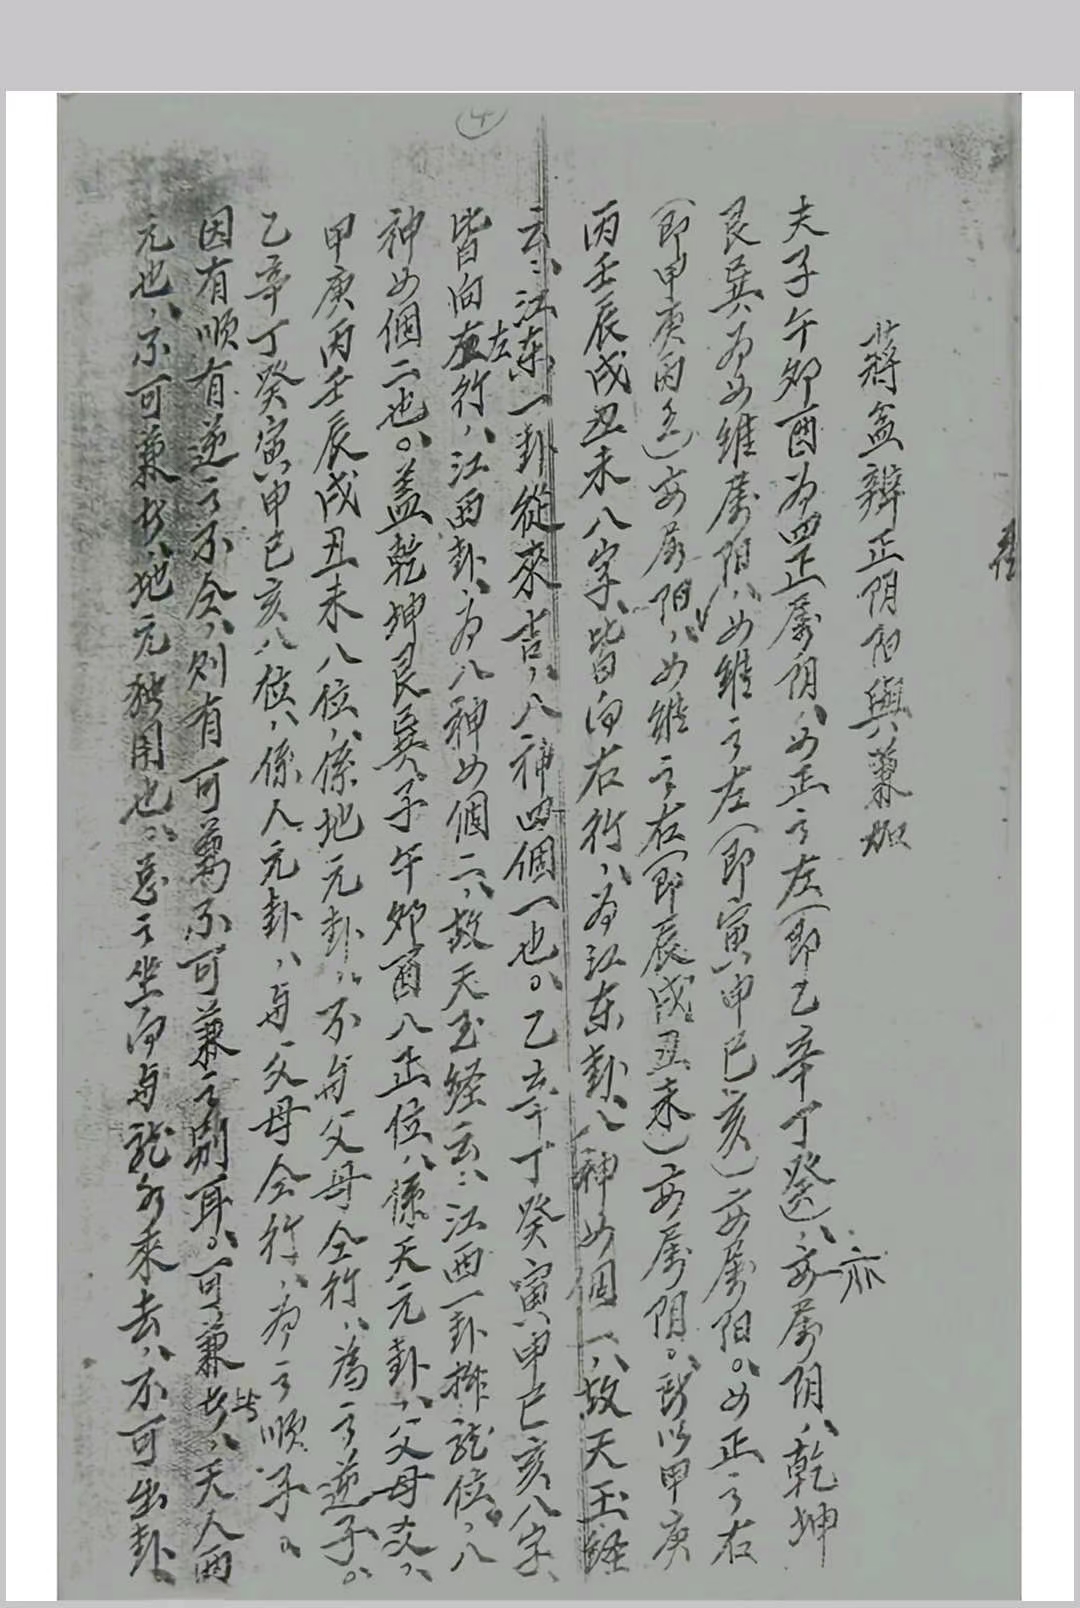 4
蔣盘辨正阴阳與兼加
夫子午卯酉为四正属阴、四正之左(即乙辛丁癸)、亦属阴、乾坤
艮巽为四维属阳、四维之左(即寅申巳亥)亦属阳。四正之右
(即甲庚丙壬)亦属阳、四维之右(即辰戌丑未)亦属阴。所以甲庚
丙壬辰戌丑未八字、皆向右行、为江东卦、八神四個一、故天玉经
云：江东一卦從來吉、八神四個一也。乙辛丁癸寅申巳亥八字、
皆向左行、江西卦、为八神四個二、故天玉经云：江西一卦排龙位、八
神四個二也。盖乾坤艮巽子午卯酉八正位、係天元卦、父母爻、
甲庚丙壬辰戌丑未八位、係地元卦、不与父母仝行、為之逆子。
乙辛丁癸寅申巳亥八位、係人元卦、与父母仝行、为之順子。
因有順有逆之不仝、则有可兼不可兼之别耳。可兼者、天人两
元也、不可兼者、地元独用也。总之坐向与龙水来去、不可出卦、